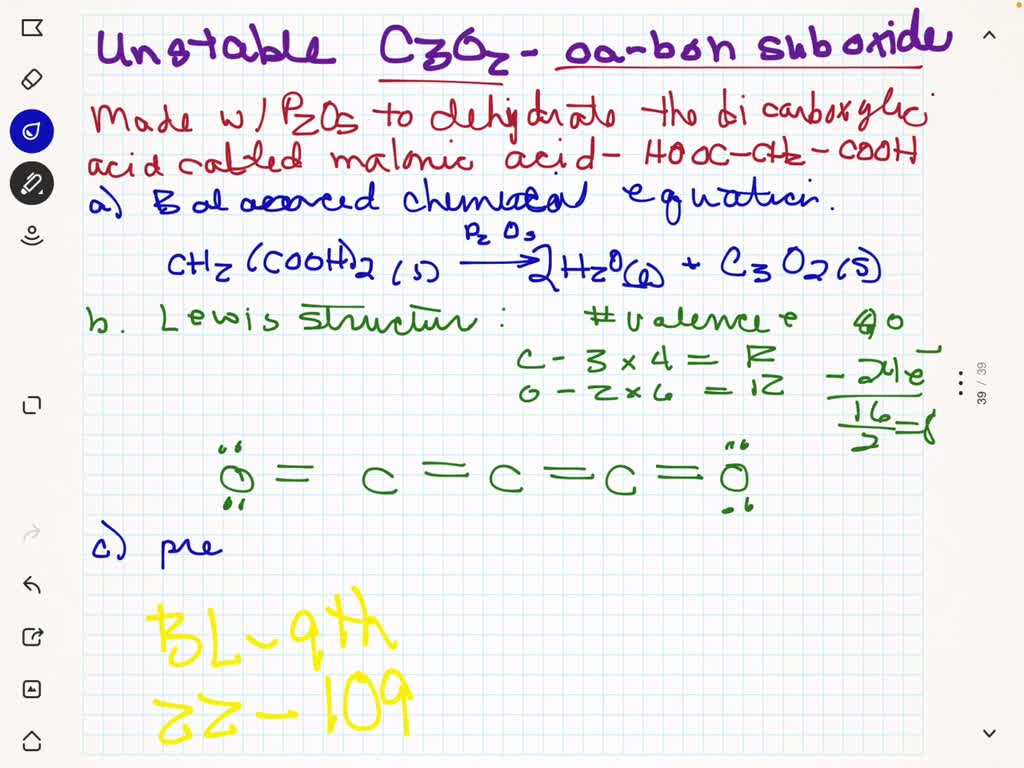 Unstable C3O2 - carbon suboxide
Made w/ P2O5 to dehydrate the bi carboxylic
acid called malonic acid - HOOC-CH2-COOH
a) Balanced chemical equation.
P2O5
CH2(COOH)2(s) → 2H2O(l) + C3O2(s)
b. Lewis structur : # valence e 40
C - 3 x 4 = 12 - 24e-
O - 2 x 6 = 12
16/2 = 8
O = C = C = C = O
c) pre
BL-9th
22-109
39 / 39